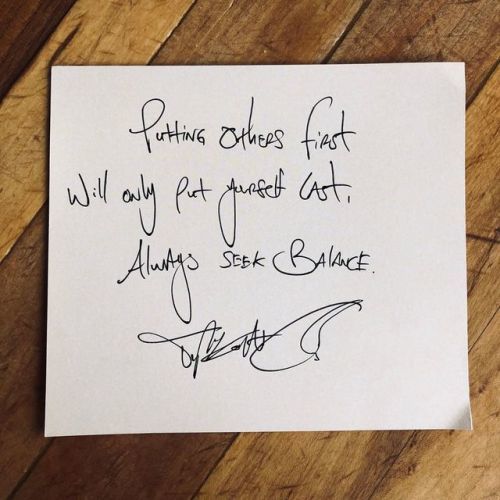 Putting others first
Will only put yourself last.
Always seek Balance.